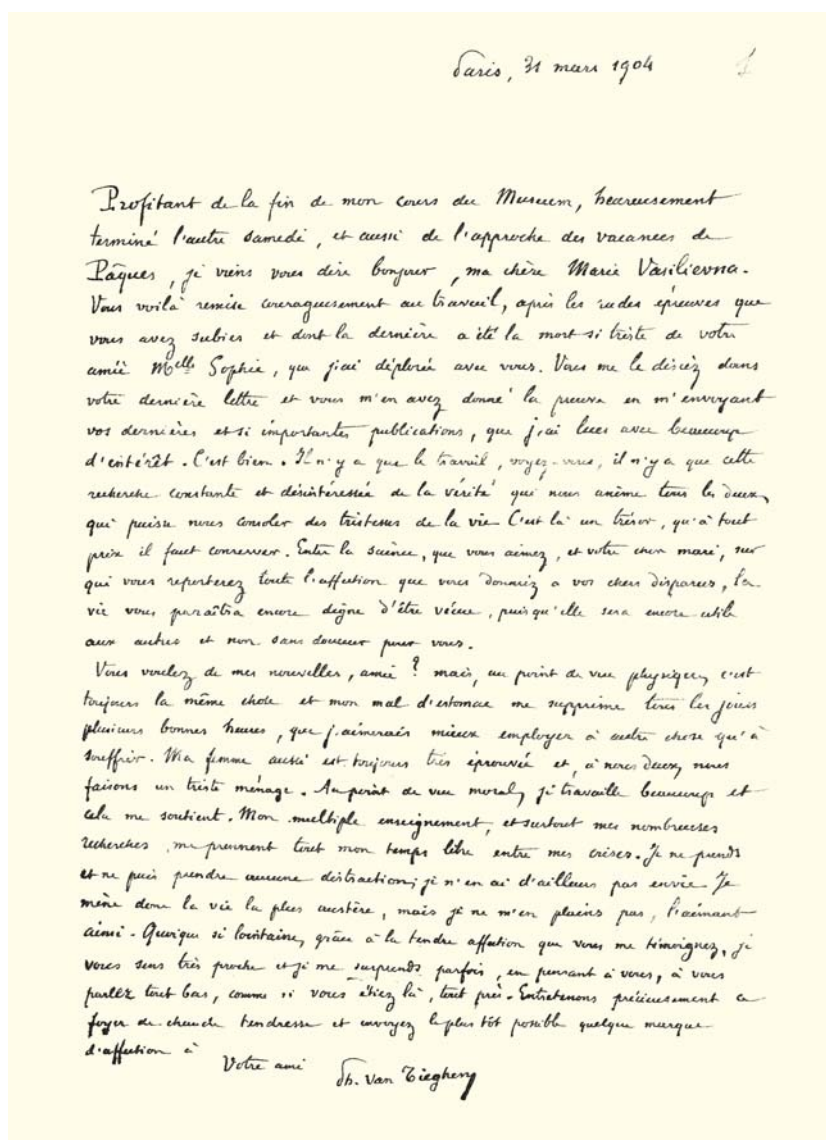 Paris, 31 mars 1904
Profitant de la fin de mon cours du Museum, heureusement
terminé l'autre samedi, et aussi de l'approche des vacances de
Pâques, je viens vous dire bonjour, ma chère Marie Vasilievna.
Vous voilà remise courageusement au travail, après les rudes épreuves que
vous avez subies et dont la dernière a été la mort si triste de votre
amie Melle Sophie, que j'ai déplorée avec vous. Vous me le disiez dans
votre dernière lettre et vous m'en avez donné la preuve en m'envoyant
vos dernières et si importantes publications, que j'ai lues avec beaucoup
d'intérêt. C'est bien. Il n'y a que le travail, voyez-vous, il n'y a que cette
recherche constante et désintéressée de la vérité qui nous anime tous les deux,
qui puisse nous consoler des tristesses de la vie C'est là un trésor, qu'à tout
prix il faut conserver. Entre la science, que vous aimez, et votre cher mari, sur
qui vous reporterez toute l'affection que vous donniez a vos chers disparus, la
vie vous paraîtra encore digne d'être vécue, puisqu'elle sera encore utile
aux autres et non sans douceur pour vous.
Vous voulez de mes nouvelles, amie? mais, au point de vue physique, c'est
toujours la même chose et mon mal d'estomac me supprime tous les jours
plusieurs bonnes heures, que j'aimerais mieux employer à autre chose qu'à
souffrir. Ma femme aussi est toujours très éprouvée et, à nous deux, nous
faisons un triste ménage. Au point de vue moral, je travaille beaucoup et
cela me soutient. Mon multiple enseignement, et surtout mes nombreuses
recherches, me prennent tout mon temps libre entre mes crises. Je ne prends
et ne puis prendre aucune distraction; je n'en ai d'ailleurs pas envie. Je
mène donc la vie la plus austère, mais je ne m'en plains pas, l'aimant
ainsi. Quoique si lointaine, grâce à la tendre affection que vous me témoignez, je
vous sens très proche et je me surprends parfois, en pensant à vous, à vous
parlez tout bas, comme si vous étiez là, tout près. Entretenons précieusement ce
foyer de chaude tendresse et envoyez le plus tôt possible quelque marque
d'affection à
Votre ami
Ph. van Tieghem